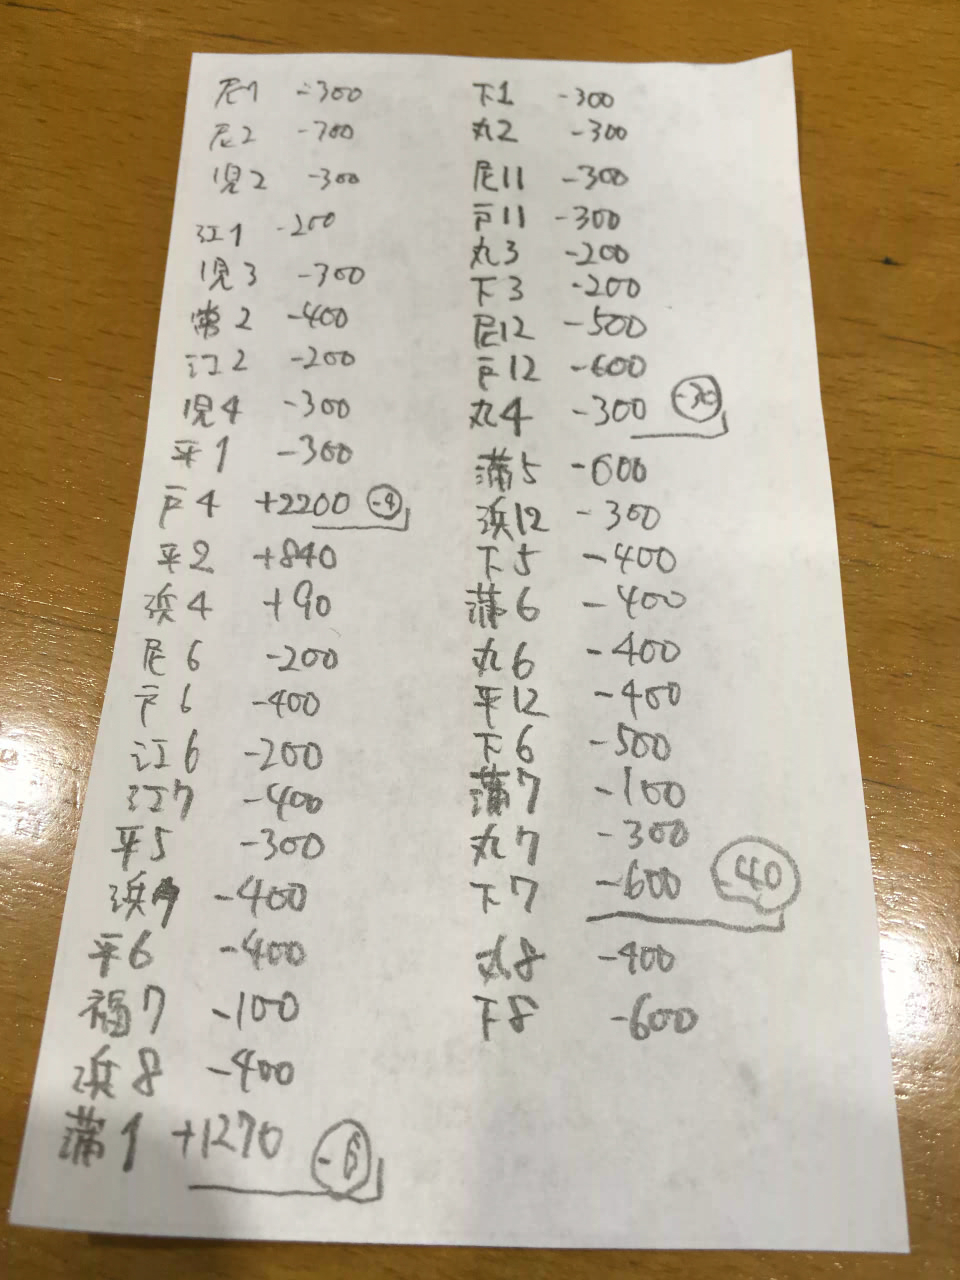 尼1 -300
尼2 -700
児2 -300
江1 -200
児3 -300
常2 -400
江2 -200
児4 -300
平1 -300
戸4 +2200 -9
平2 +840
浜4 +90
尼6 -200
戸6 -400
江6 -200
江7 -400
平5 -300
浜7 -400
平6 -400
福7 -100
浜8 -400
蒲1 +1270 -6
下1 -300
丸2 -300
尼11 -300
戸11 -300
丸3 -200
下3 -200
尼12 -500
戸12 -600
丸4 -300 -36
蒲5 -600
浜12 -300
下5 -400
蒲6 -400
丸6 -400
平12 -400
下6 -500
蒲7 -100
丸7 -300
下7 -600 -40
丸8 -400
下8 -600